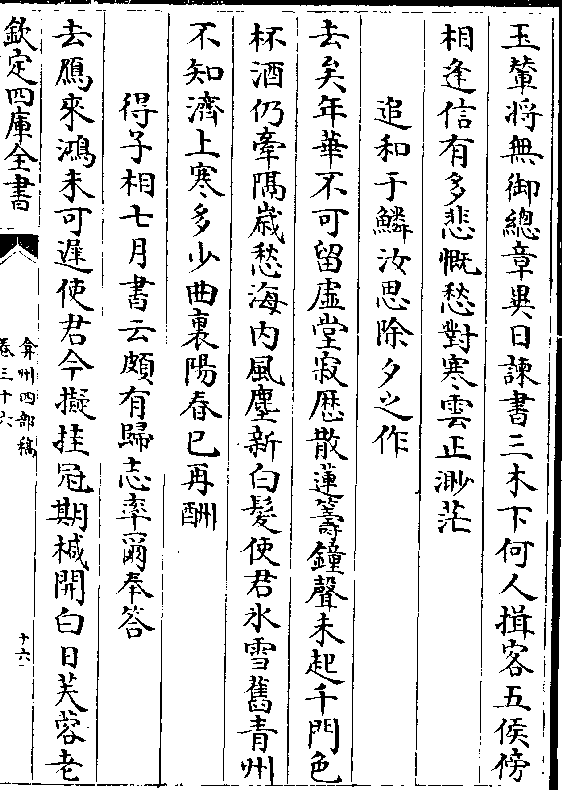 玉輦將無御總章異日諫書三木下何人揖客五侯傍
相逢信有多悲慨愁對寒雲正渺茫
追和于鱗汝思除夕之作
去矣年華不可留虛堂寂歴散蓮籌鐘聲未起千門色
杯酒仍牽隔嵗愁海内風塵新白髮使君氷雪舊青州
不知濟上寒多少曲裏陽春已再酬
得子相七月書云頗有歸志率爾奉答
去鴈來鴻未可遲使君今擬挂冠期椷開白日芙蓉老
欽定四庫全書
弇州四部稿
卷三十六
十六